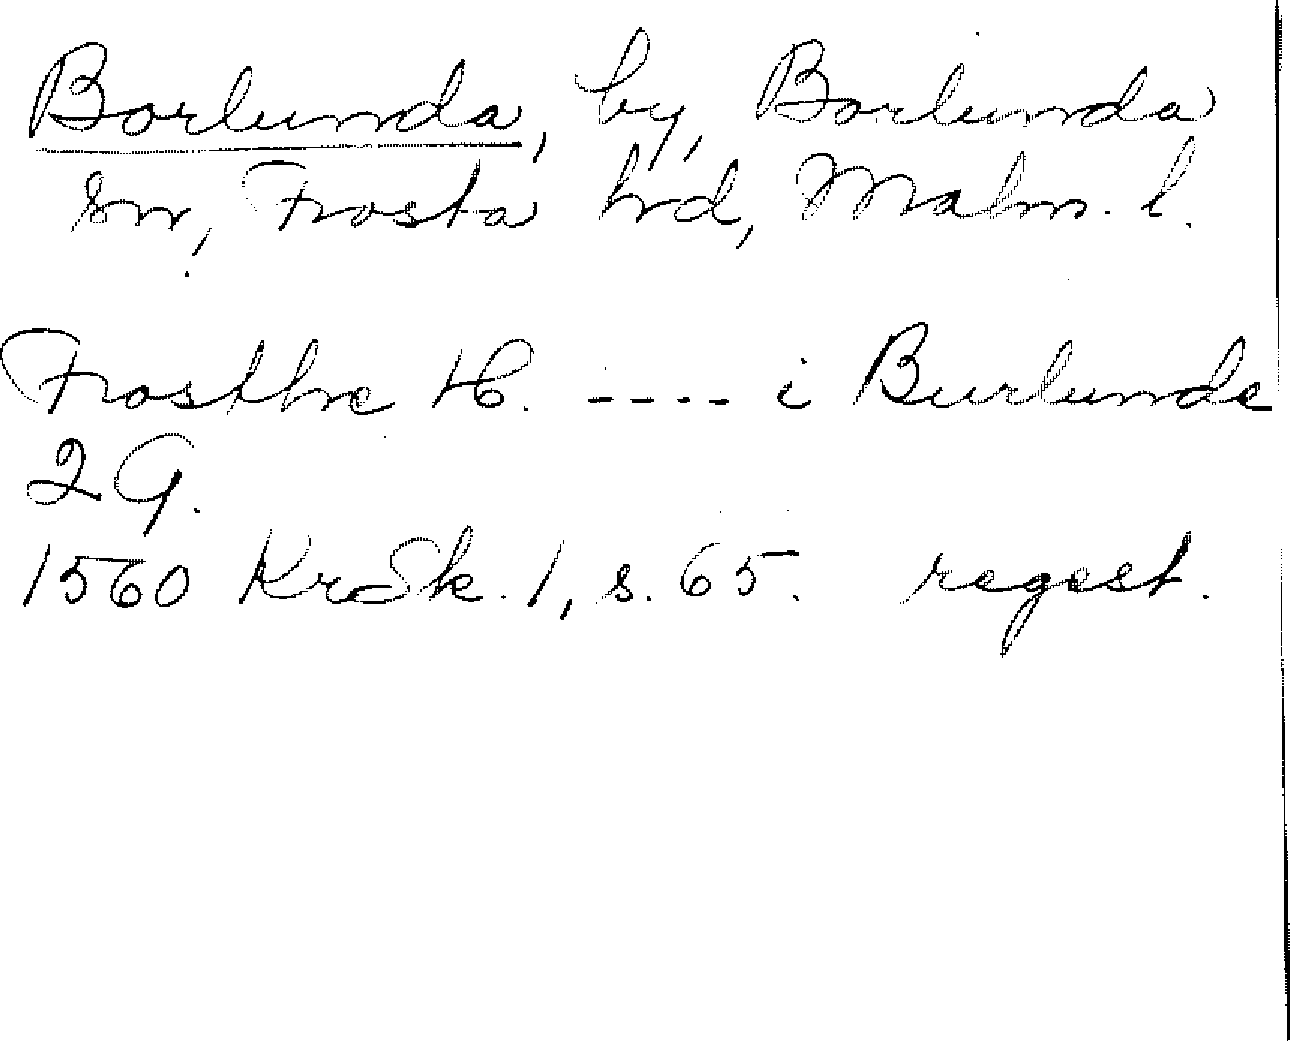 Borlunda, by, Borlunda
sn, Frosta hrd, Malm. l.
Frosthre H. ---- i Burlunde
2 G.
1560 KrSk. 1, s. 65. regest.